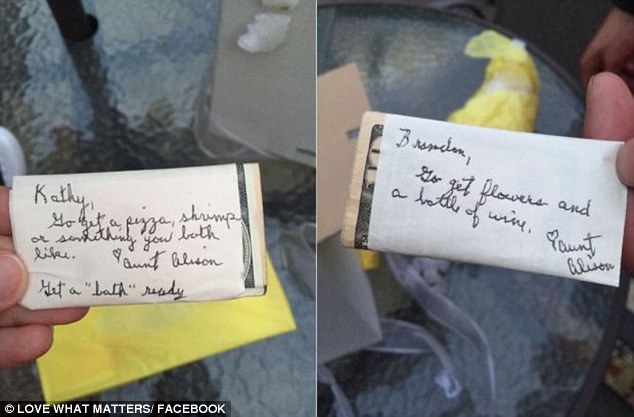 Kathy,
Go get a pizza, shrimp
or something you both
like. ♡ Aunt Alison
Get a "bath" ready
Brandon,
Go get flowers and
a bottle of wine.
♡ Aunt
Alison
© LOVE WHAT MATTERS/ FACEBOOK